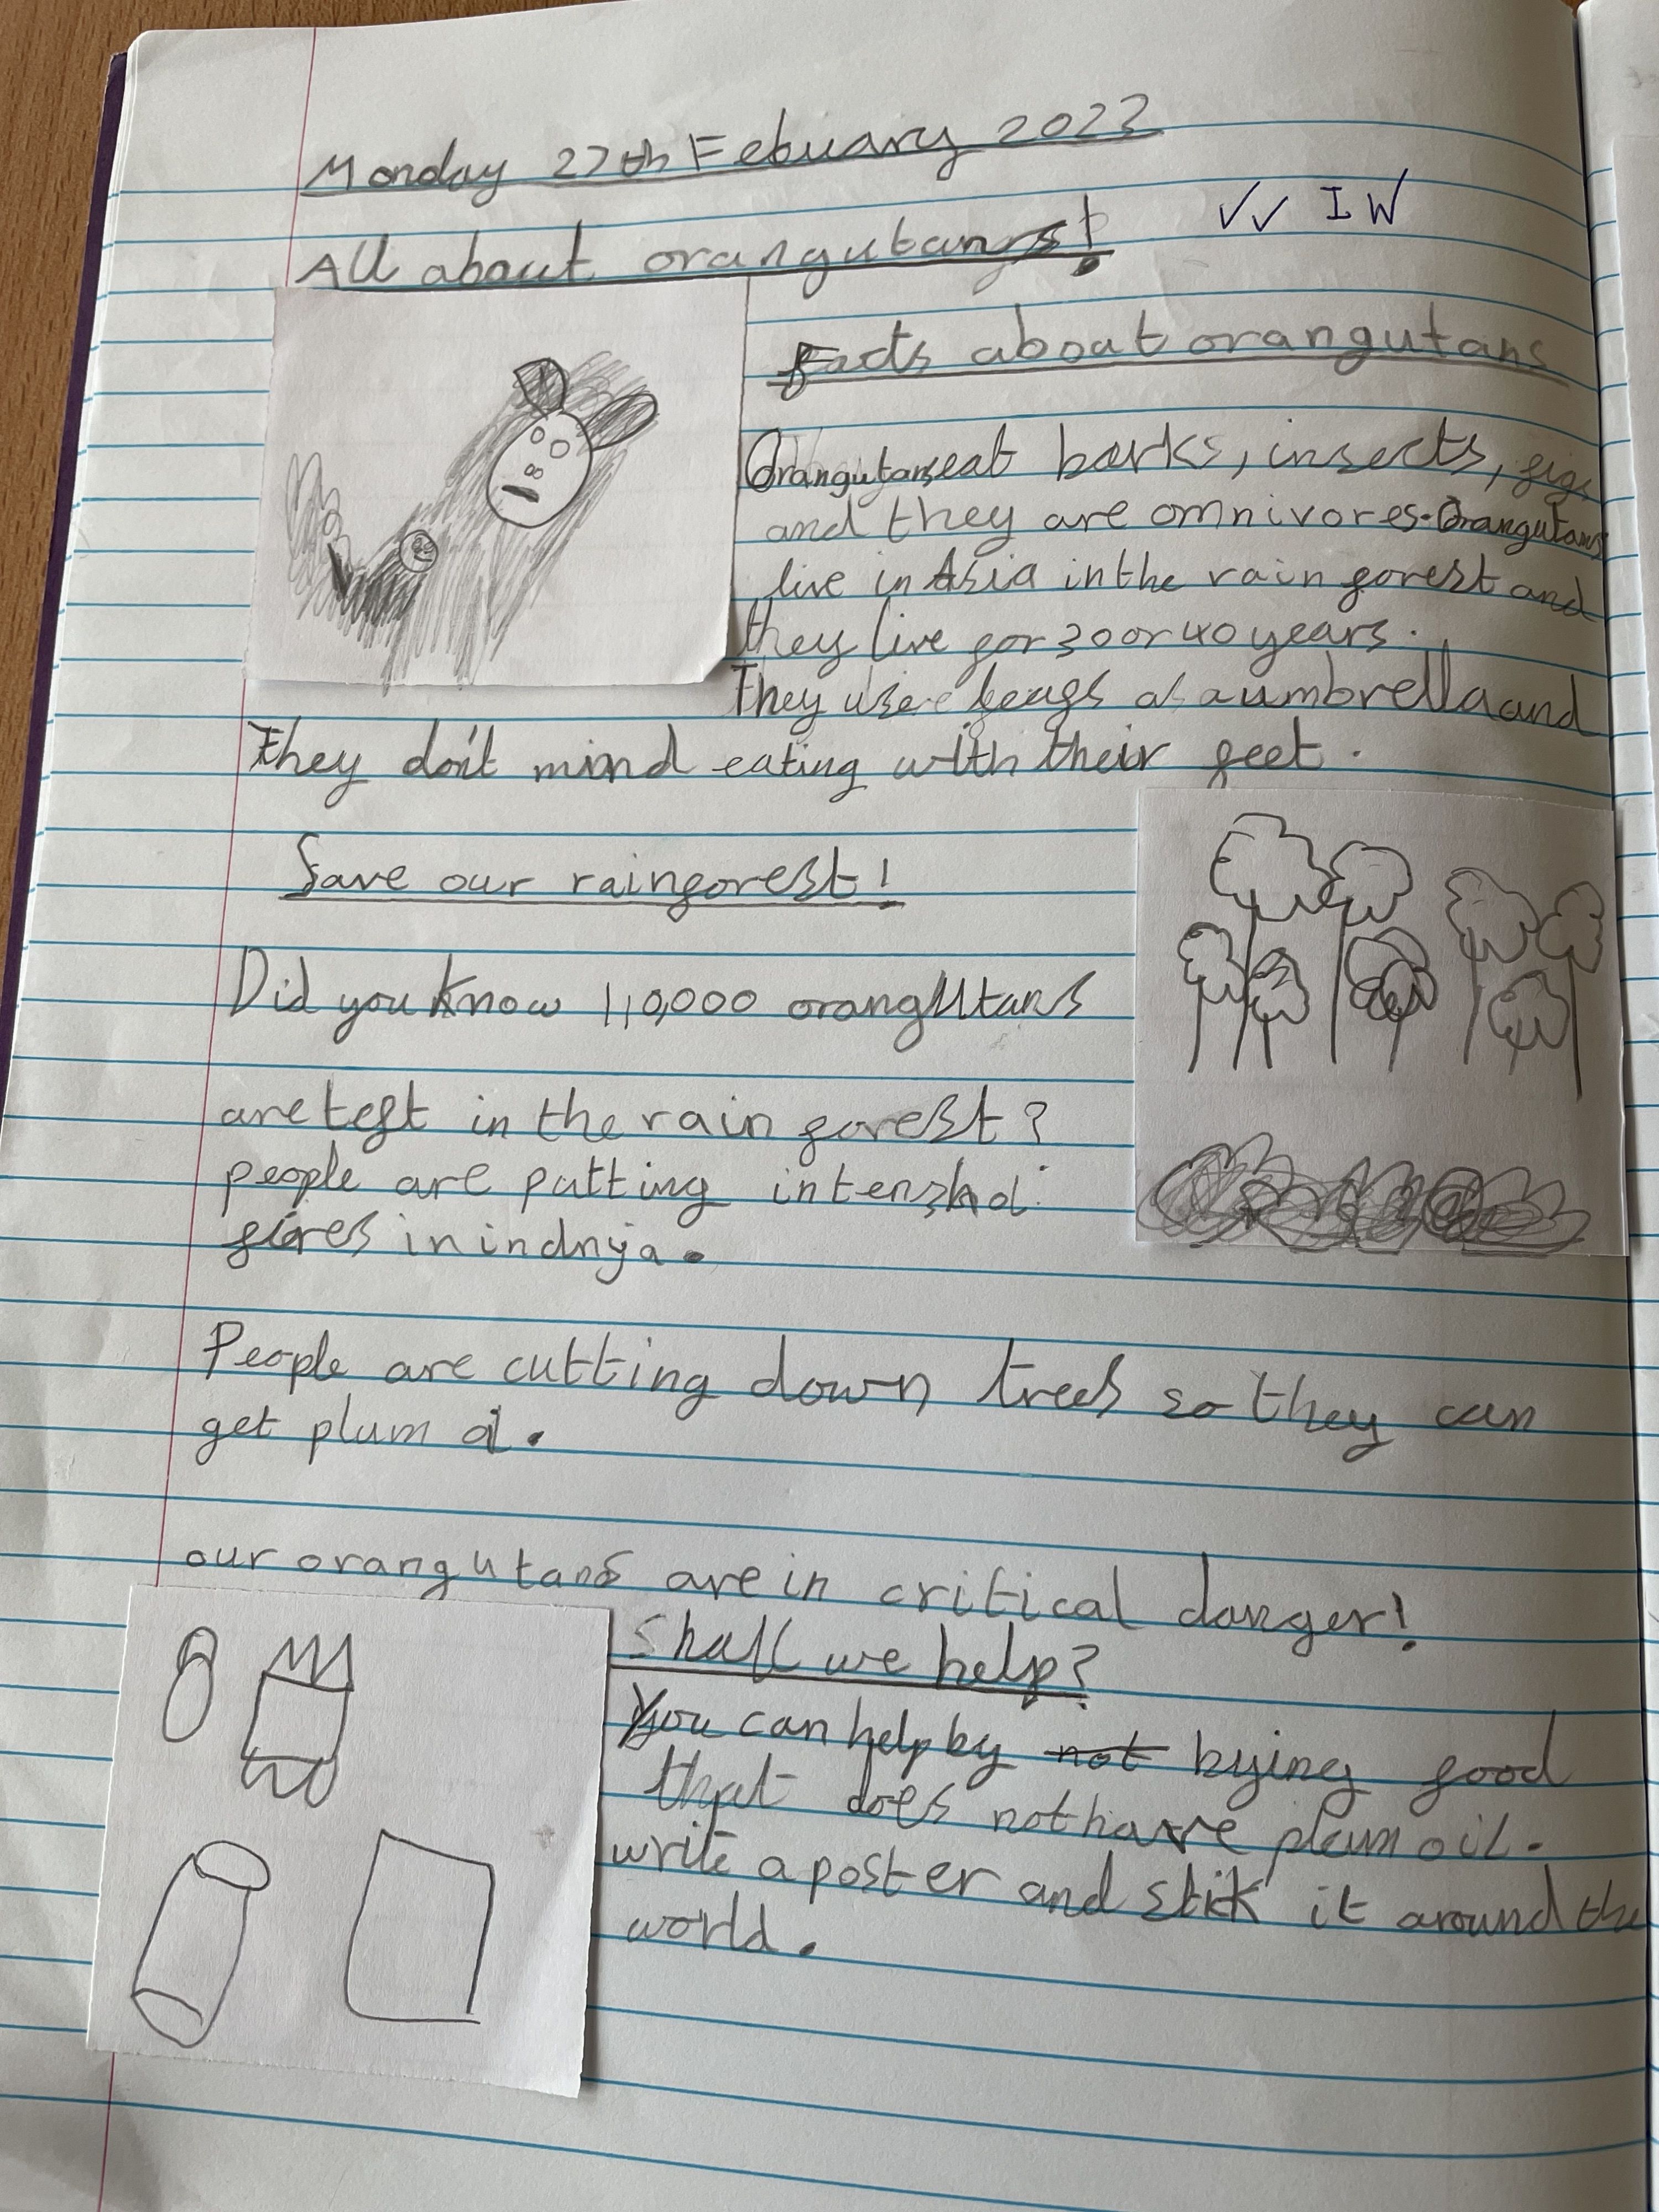 Monday 27th Febuary 2023
All about orangutangs!
✓✓ I W
Facts about orangutans
Orangutans eat barks, insects, figs
and they are omnivores. Orangutans
live in Asia in the rain forest and
they live for 30 or 40 years.
They use leafs as a umbrella and
They don't mind eating with their feet.
Save our rainforest!
Did you know 110,000 orangutans
are left in the rain forest?
people are putting intenshd
fires in indnja.
People are cutting down trees so they can
get plum oil.
our orangutans are in critical danger!
Shall we help?
You can help by not bying food
that does not have plum oil.
write a poster and stick it around the
world.